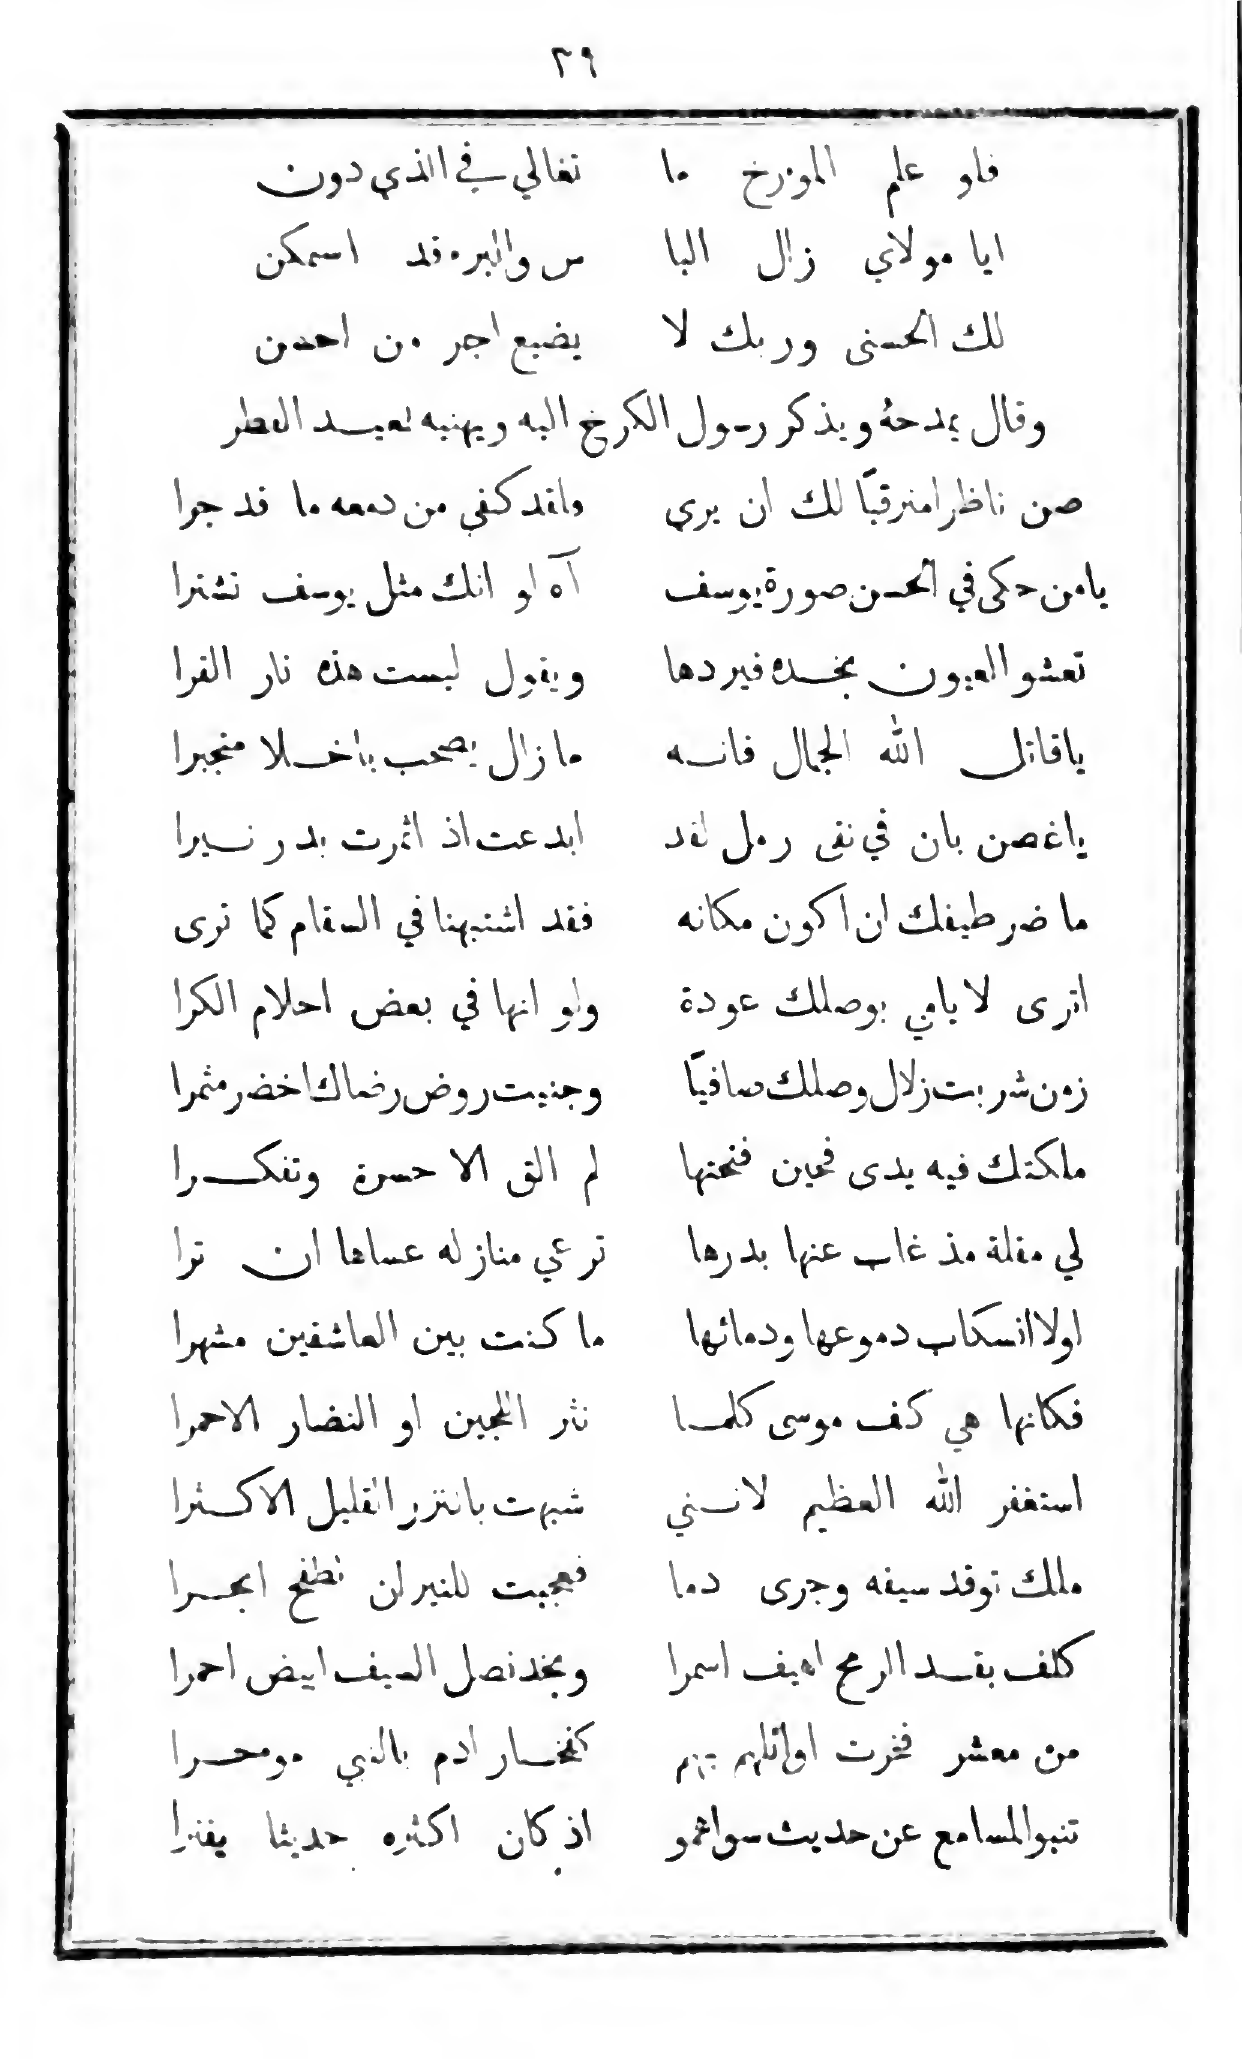 ٢٩
فلو علم المؤرخ ما تغالي في الذي دون
ايا مولاي زال البا س والبرء قد اسمكن
لك الحسنى وربك لا يضيع اجر من احسن
وقال يمدحهُ ويذكر رسول الكرخ اليه ويهنيه بعيد الفطر
صن ناظرا مترقبًا لك ان يرى فلقد كفى من دمعه ما قد جرا
يا من حكى في الحسن صورة يوسف آه لو انك مثل يوسف تشترا
تعشو العيون بخده فيردها ويقول ليست هذه نار القرا
يا قاتل الله الجمال فانه ما زال يصحب باخلا متجبرا
يا غصن بان في نقى رمل لقد ابدعت اذ اثمرت بدر نيرا
ما ضر طيفك ان اكون مكانه فقد اشتبهنا في السقام كما ترى
اترى لايامي بوصلك عودة ولو انها في بعض احلام الكرا
زمن شربت زلال وصلك صافيًا وجنيت روض رضاك اخضر مثمرا
ملكتك فيه يدى فحين فتحتها لم الق الا حسرة وتفكرا
لي مقلة مذ غاب عنها بدرها ترعي منازله عساها ان ترا
لولا انسكاب دموعها ودمائها ما كنت بين العاشقين مشهرا
فكانها هي كف موسى كلما نثر اللجين او النضار الاحمرا
استغفر الله العظيم لانني شبهت بالنزر القليل الاكثرا
ملك توقد سيفه وجرى دما فعجبت للنيران تطفح ابحرا
كلف بقد الرمح اهيف اسمرا وبخد نصل السيف ابيض احمرا
من معشر فخرت اوائلهم بهم كفخار ادم بالنبي موخرا
تنبو المسامع عن حديث سواهمو اذ كان اكثره حديثا يفترا